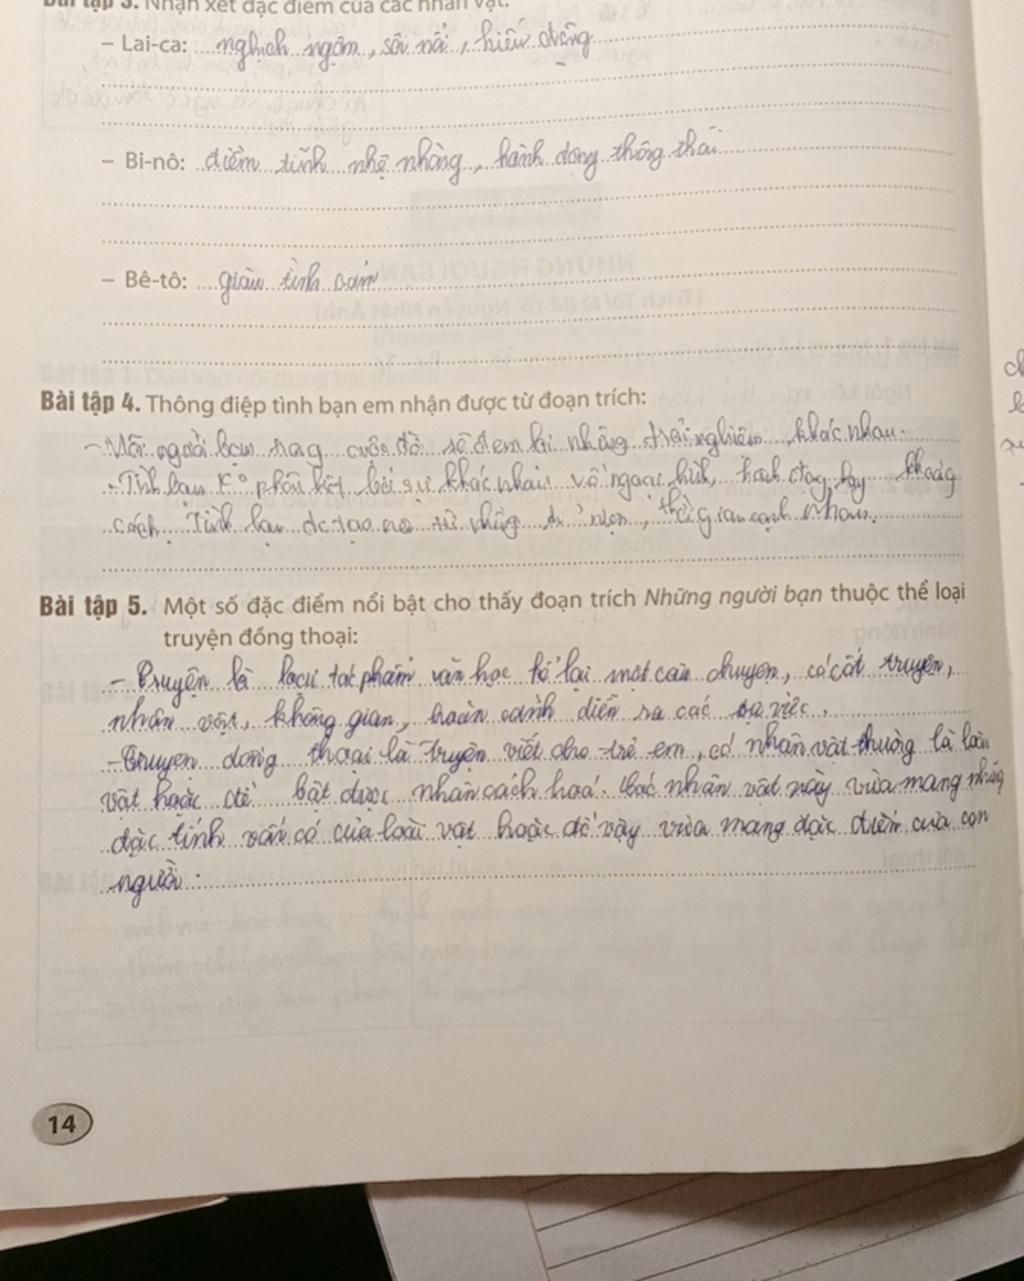 Bài tập 3. Nhận xét đặc điểm của các nhân vật:
– Lai-ca: nghịch ngợm, sôi nổi, hiếu động
– Bi-nô: điềm tĩnh nhẹ nhàng, hành động thông thái
– Bê-tô: giàu tình cảm
Bài tập 4. Thông điệp tình bạn em nhận được từ đoạn trích:
- Mỗi người bạn trog cuộc đời sẽ đem lại những trải nghiệm khác nhau.
- Tình bạn ko phân biệt bởi sự khác nhau về ngoại hình, hành động, hay khoảng
cách. Tình bạn đc tạo nên từ những kỉ niệm, thời gian cạnh nhau.
Bài tập 5. Một số đặc điểm nổi bật cho thấy đoạn trích Những người bạn thuộc thể loại
truyện đồng thoại:
- Truyện là loại tác phẩm văn học kể lại một câu chuyện, có cốt truyện,
nhân vật, không gian, hoàn cảnh diễn ra các sự việc.
- Truyện đồng thoại là truyện viết cho trẻ em, có nhân vật thường là loài
vật hoặc đồ vật được nhân cách hoá. Các nhân vật này vừa mang những
đặc tính vốn có của loài vật hoặc đồ vậy vừa mang đặc điểm của con
người.
14